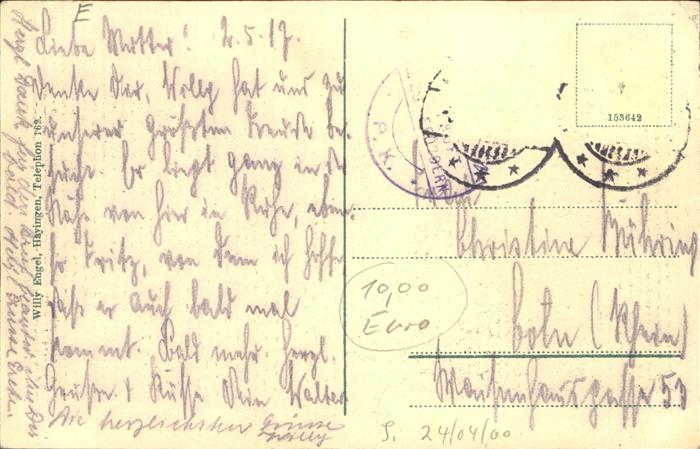 E
Liebe Mutter! 2.5.17.
Denke Dir, Willy hat uns zu
unserer größten Freude be-
sucht. Er liegt ganz in der
Nähe von hier in Ruhe, eben-
so Fritz, von dem ich hoffe
daß er auch bald mal
kommt. Bald mehr. Herzl.
Grüße & Küsse Dein Walter
Die herzlichsten Grüsse
Willy
Herzl. Dank für den
Willy Engel, Hayingen, Telephon 162.
P. K.
153642
Christine
Cöln (Rhein)
Waisenhausgasse 53
10,00
Euro
S. 24/04/00